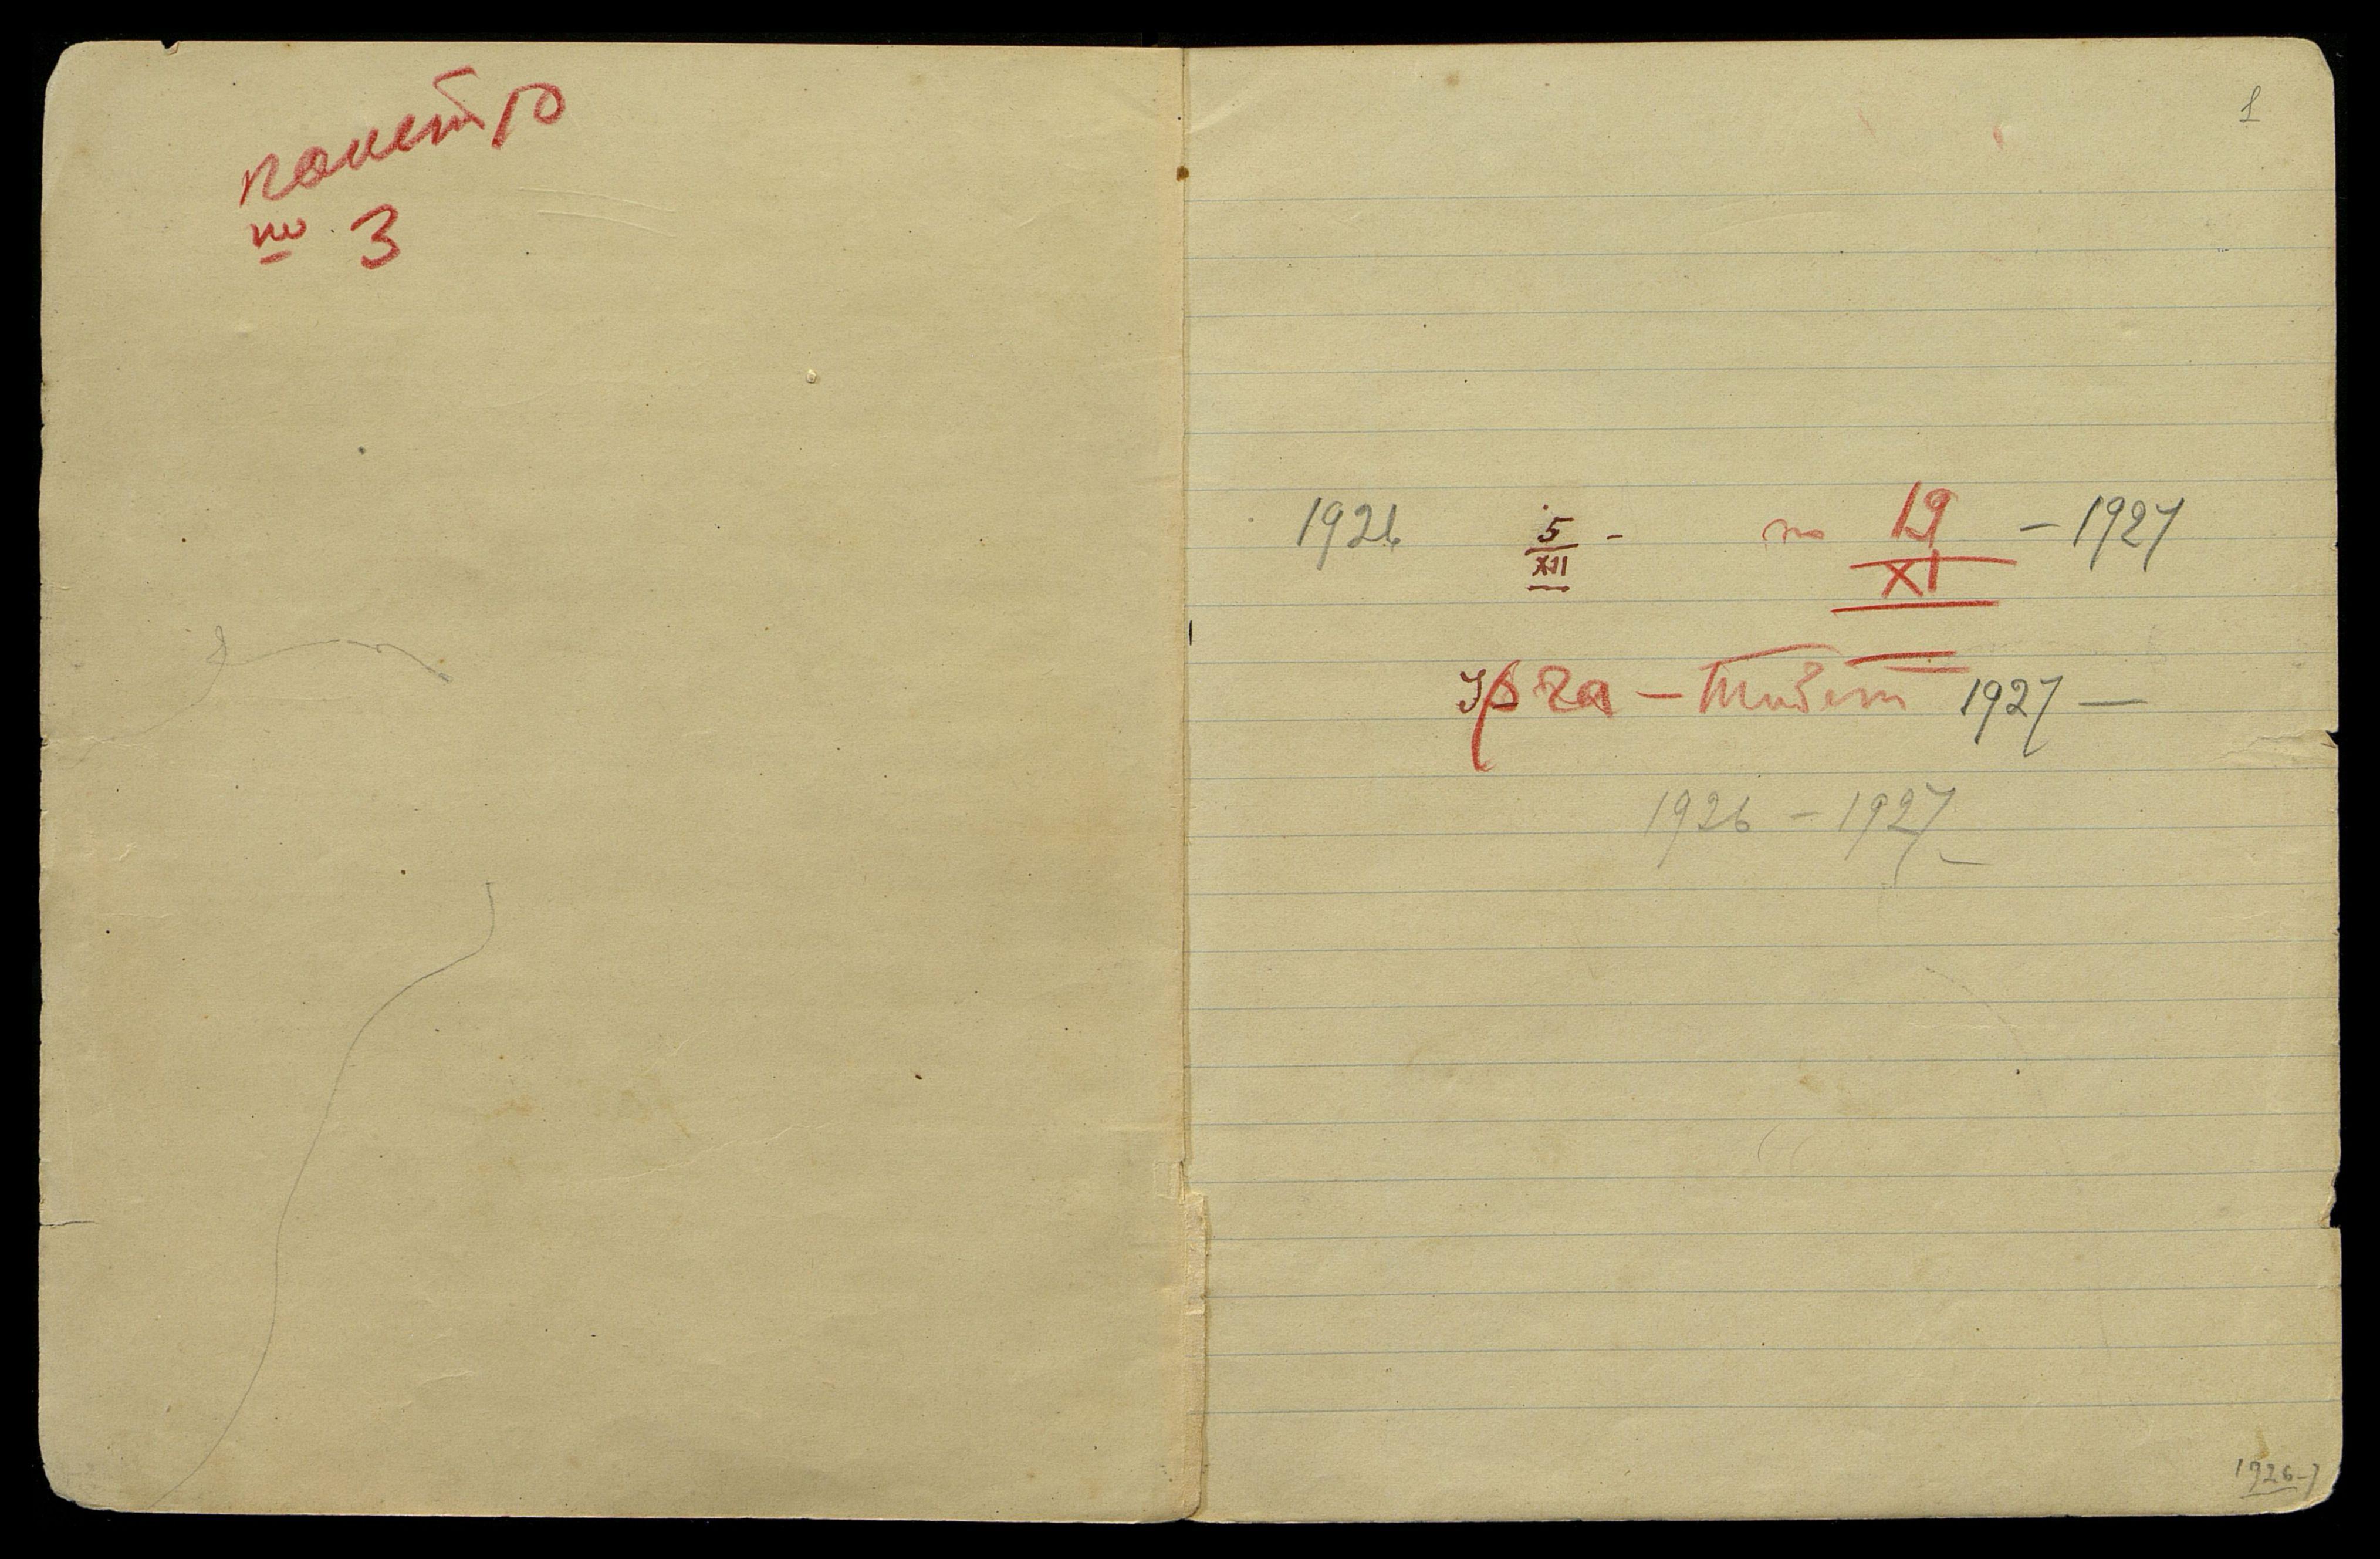 № 3
1
1926 5/XII - по 19/XI - 1927
Урга - Тибет 1927 —
1926 - 1927
1926-7